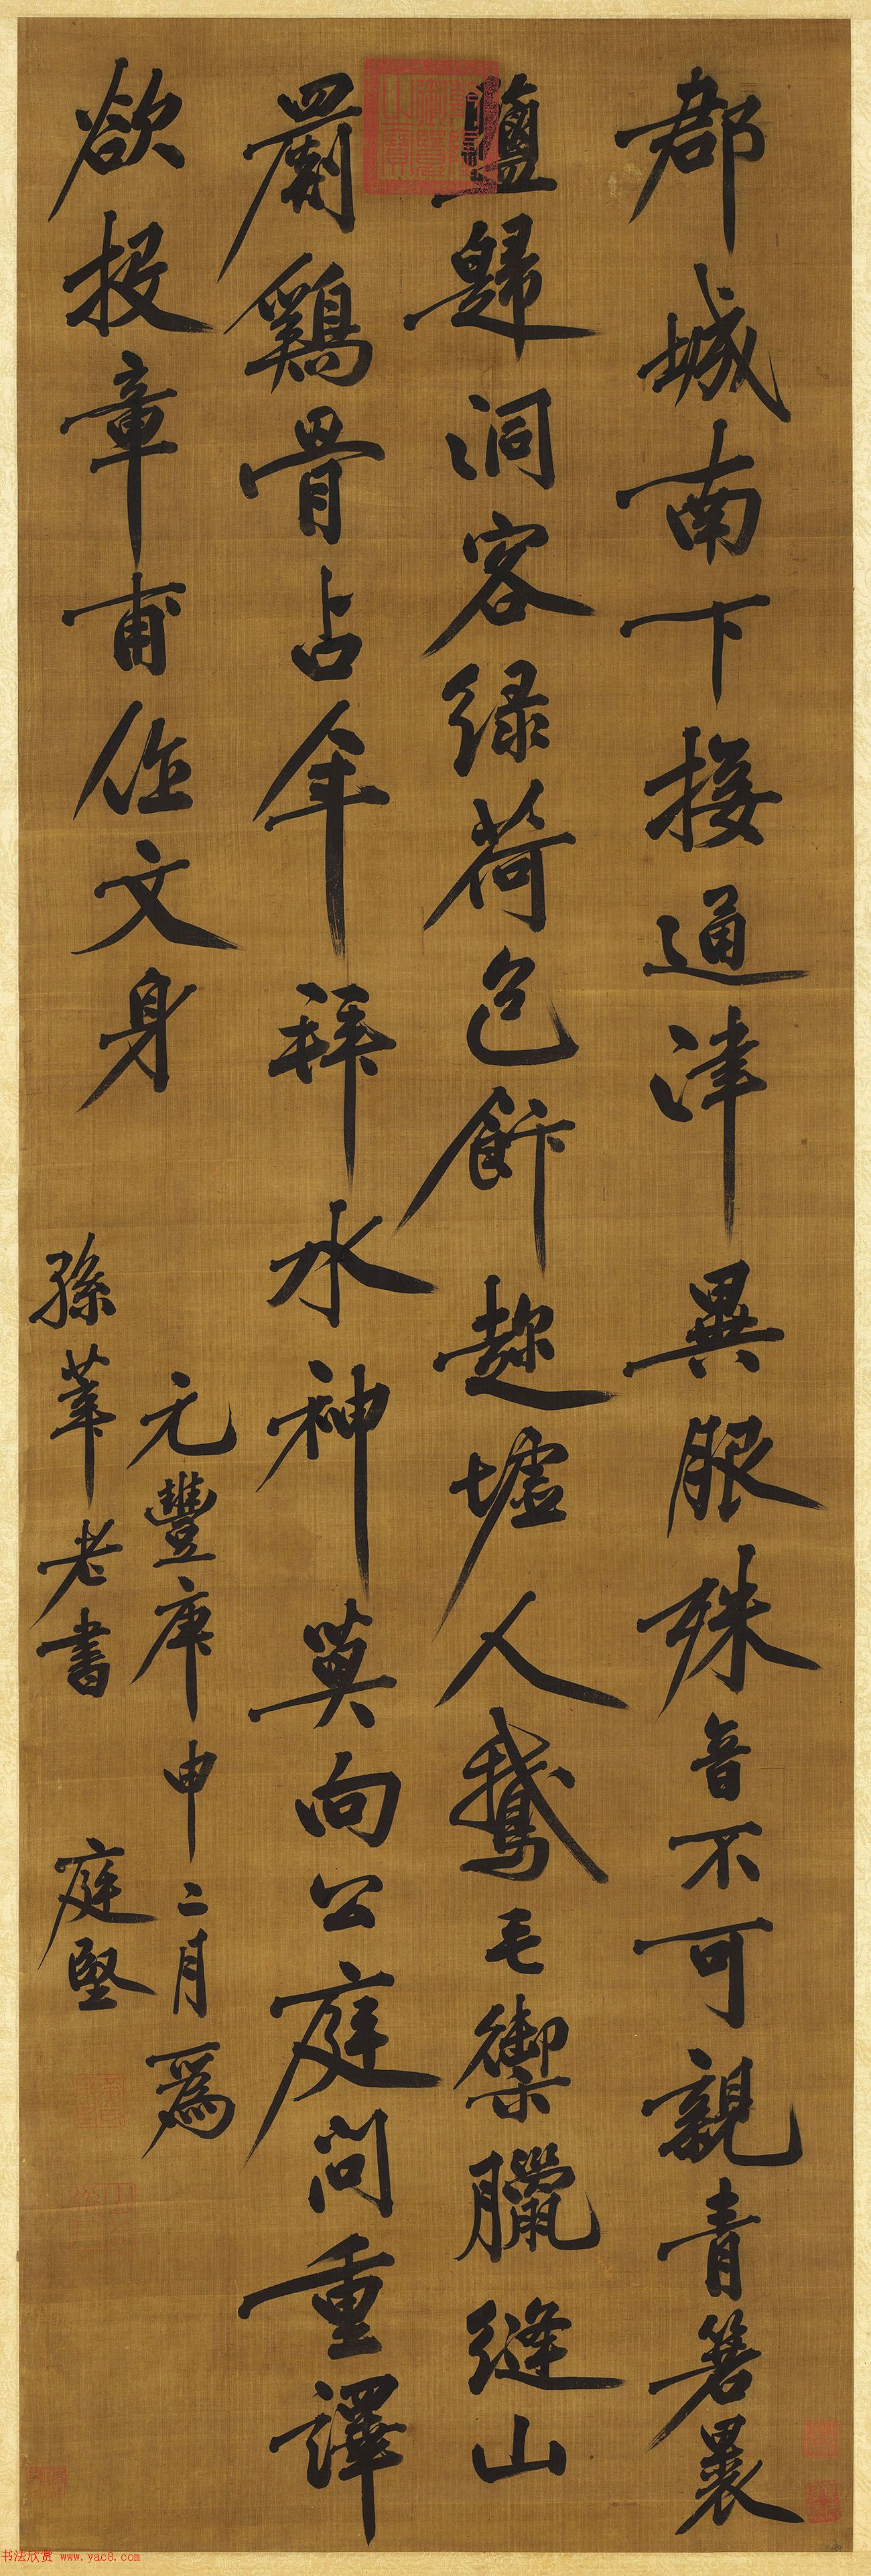 郡城南下接通津異服殊音不可親青箬裹
鹽歸洞客緑荷包飯趂墟人鵝毛禦臘縫山
罽鷄骨占年拜水神莫向公庭問重譯
欲投章甫作文身
元豐庚申二月爲
孫莘老書 庭堅
书法欣赏 www.yac8.com